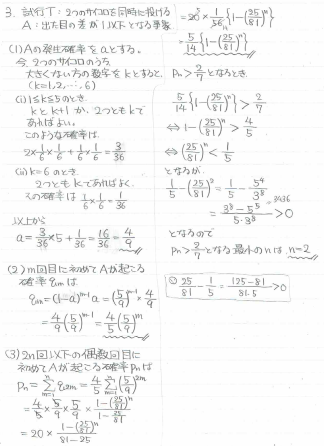 3. 試行T : 2つのサイコロを同時に投げる
A : 出た目の差が1以下となる事象
(1) Aの発生確率をaとする。
今、2つのサイコロのうち
大きくない方の数字をkとすると、
(k=1,2,…,6)
(i) 1≦k≦5のとき
kとk+1か、2つともkで
あればよい。
このような確率は
2×1/6×1/6+1/6×1/6=3/36
(ii) k=6のとき
2つともkであればよく
その確率は 1/6×1/6=1/36
以上から
a=3/36×5+1/36=16/36=4/9
(2) m回目に初めてAが起こる
確率 qmは
qm=(1-a)^(m-1) a=(5/9)^(m-1)×4/9
=4/9(5/9)^(m-1)=4/5(5/9)^m
(3) 2n回以下の偶数回目に
初めてAが起こる確率pnは
pn=Σ[m=1→n] q2m=4/5 Σ[m=1→n] (5/9)^(2m)
=4/5×5/9×5/9×(1-(25/81)^n)/(1-25/81)
=20×(1-(25/81)^n)/(81-25)
=20×1/56{1-(25/81)^n}
5
14
=5/14{1-(25/81)^n}
pn>2/7となるとき
5/14{1-(25/81)^n}>2/7
⇔ 1-(25/81)^n>4/5
⇔ (25/81)^n<1/5
となるが
1/5-(25/81)^2=1/5-5^4/3^8
=(3^8-5^5)/(5・3^8)>0
となるので
pn>2/7となる最小のnは n=2
25/81-1/5=(125-81)/(81・5)>0